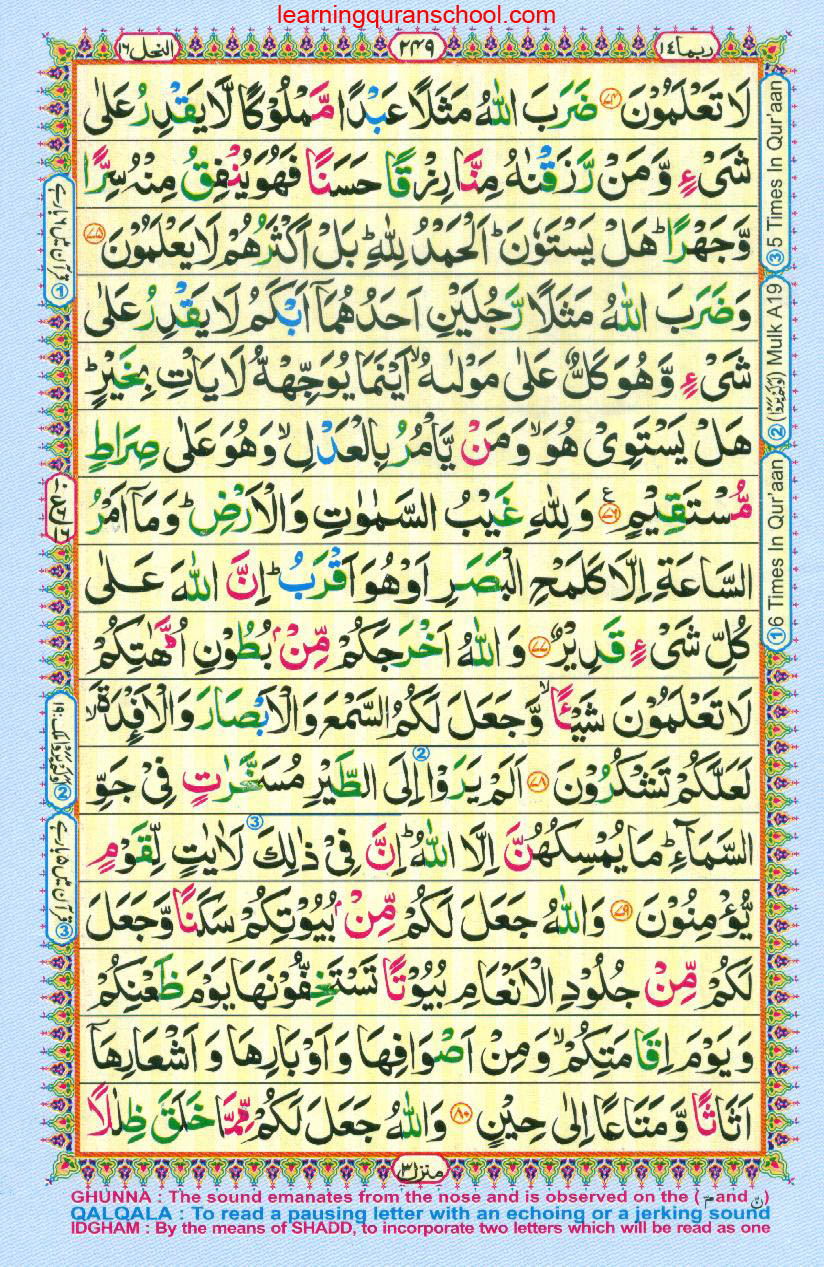 learningquranschool.com
النحل ١٦
٢٤٩
ربما ١٤
لَا تَعْلَمُوْنَ ﴿۷۴﴾ ضَرَبَ اللّٰهُ مَثَلًا عَبْدًا مَّمْلُوْكًا لَّا يَقْدِرُ عَلٰى
شَیْءٍ وَّمَنْ رَّزَقْنٰهُ مِنَّا رِزْقًا حَسَنًا فَهُوَ يُنْفِقُ مِنْهُ سِرًّا
وَّجَهْرًا ؕ هَلْ يَسْتَوٗنَ ؕ اَلْحَمْدُ لِلّٰهِ ؕ بَلْ اَكْثَرُهُمْ لَا يَعْلَمُوْنَ ﴿۷۵﴾
وَضَرَبَ اللّٰهُ مَثَلًا رَّجُلَيْنِ اَحَدُهُمَاۤ اَبْكَمُ لَا يَقْدِرُ عَلٰى
شَیْءٍ وَّهُوَ كَلٌّ عَلٰى مَوْلٰىهُ ۙ اَيْنَمَا يُوَجِّهْهُّ لَا يَاْتِ بِخَيْرٍ ؕ
هَلْ يَسْتَوِیْ هُوَ ۙ وَمَنْ يَّاْمُرُ بِالْعَدْلِ ۙ وَهُوَ عَلٰى صِرَاطٍ
مُّسْتَقِيْمٍ ﴿۷۶﴾ ع وَلِلّٰهِ غَيْبُ السَّمٰوٰتِ وَالْاَرْضِ ؕ وَمَاۤ اَمْرُ
السَّاعَةِ اِلَّا كَلَمْحِ الْبَصَرِ اَوْ هُوَ اَقْرَبُ ؕ اِنَّ اللّٰهَ عَلٰى
كُلِّ شَیْءٍ قَدِيْرٌ ﴿۷۷﴾ وَاللّٰهُ اَخْرَجَكُمْ مِّنْۢ بُطُوْنِ اُمَّهٰتِكُمْ
لَا تَعْلَمُوْنَ شَيْـًٔا ۙ وَّجَعَلَ لَكُمُ السَّمْعَ وَالْاَبْصَارَ وَالْاَفْـِٕدَةَ ۙ
لَعَلَّكُمْ تَشْكُرُوْنَ ﴿۷۸﴾ اَلَمْ يَرَوْا ② اِلَى الطَّيْرِ مُسَخَّرٰتٍ فِیْ جَوِّ
السَّمَآءِ ؕ مَا يُمْسِكُهُنَّ اِلَّا اللّٰهُ ؕ اِنَّ فِیْ ذٰلِكَ ③ لَاٰيٰتٍ لِّقَوْمٍ
يُّؤْمِنُوْنَ ﴿۷۹﴾ وَاللّٰهُ جَعَلَ لَكُمْ مِّنْۢ بُيُوْتِكُمْ سَكَنًا وَّجَعَلَ
لَكُمْ مِّنْ جُلُوْدِ الْاَنْعَامِ بُيُوْتًا تَسْتَخِفُّوْنَهَا يَوْمَ ظَعْنِكُمْ
وَيَوْمَ اِقَامَتِكُمْ ۙ وَمِنْ اَصْوَافِهَا وَاَوْبَارِهَا وَاَشْعَارِهَاۤ
اَثَاثًا وَّمَتَاعًا اِلٰى حِيْنٍ ﴿۸۰﴾ وَاللّٰهُ جَعَلَ لَكُمْ مِّمَّا خَلَقَ ظِلٰلًا
③ 5 Times In Qur'aan
② Mulk A19
① 6 Times In Qur'aan
منزل ٣
GHUNNA : The sound emanates from the nose and is observed on the (مّ and نّ)
QALQALA : To read a pausing letter with an echoing or a jerking sound
IDGHAM : By the means of SHADD, to incorporate two letters which will be read as one